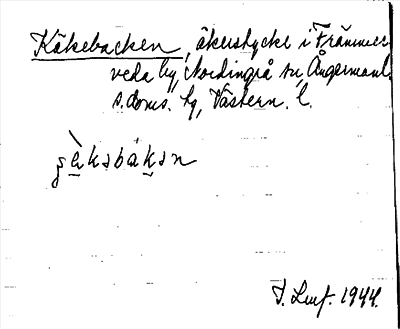 Käkebacken, åkerstycke i Främmer-
veda by, Nordingrå sn, Ångermanl.
s. doms. hg, Västern. l.
g̀èksbàksn
1944.